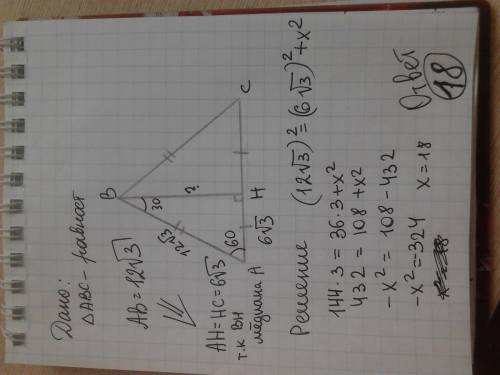 Дано:
△ABC - равност
AB = 12√3
AH = HC = 6√3
т.к BH
медиана
B
30
?
12√3
60
A
6√3
H
C
Решение
(12√3)² = (6√3)² + x²
144·3 = 36·3 + x²
432 = 108 + x²
-x² = 108 - 432
-x² = -324
x = 18
Ответ
18